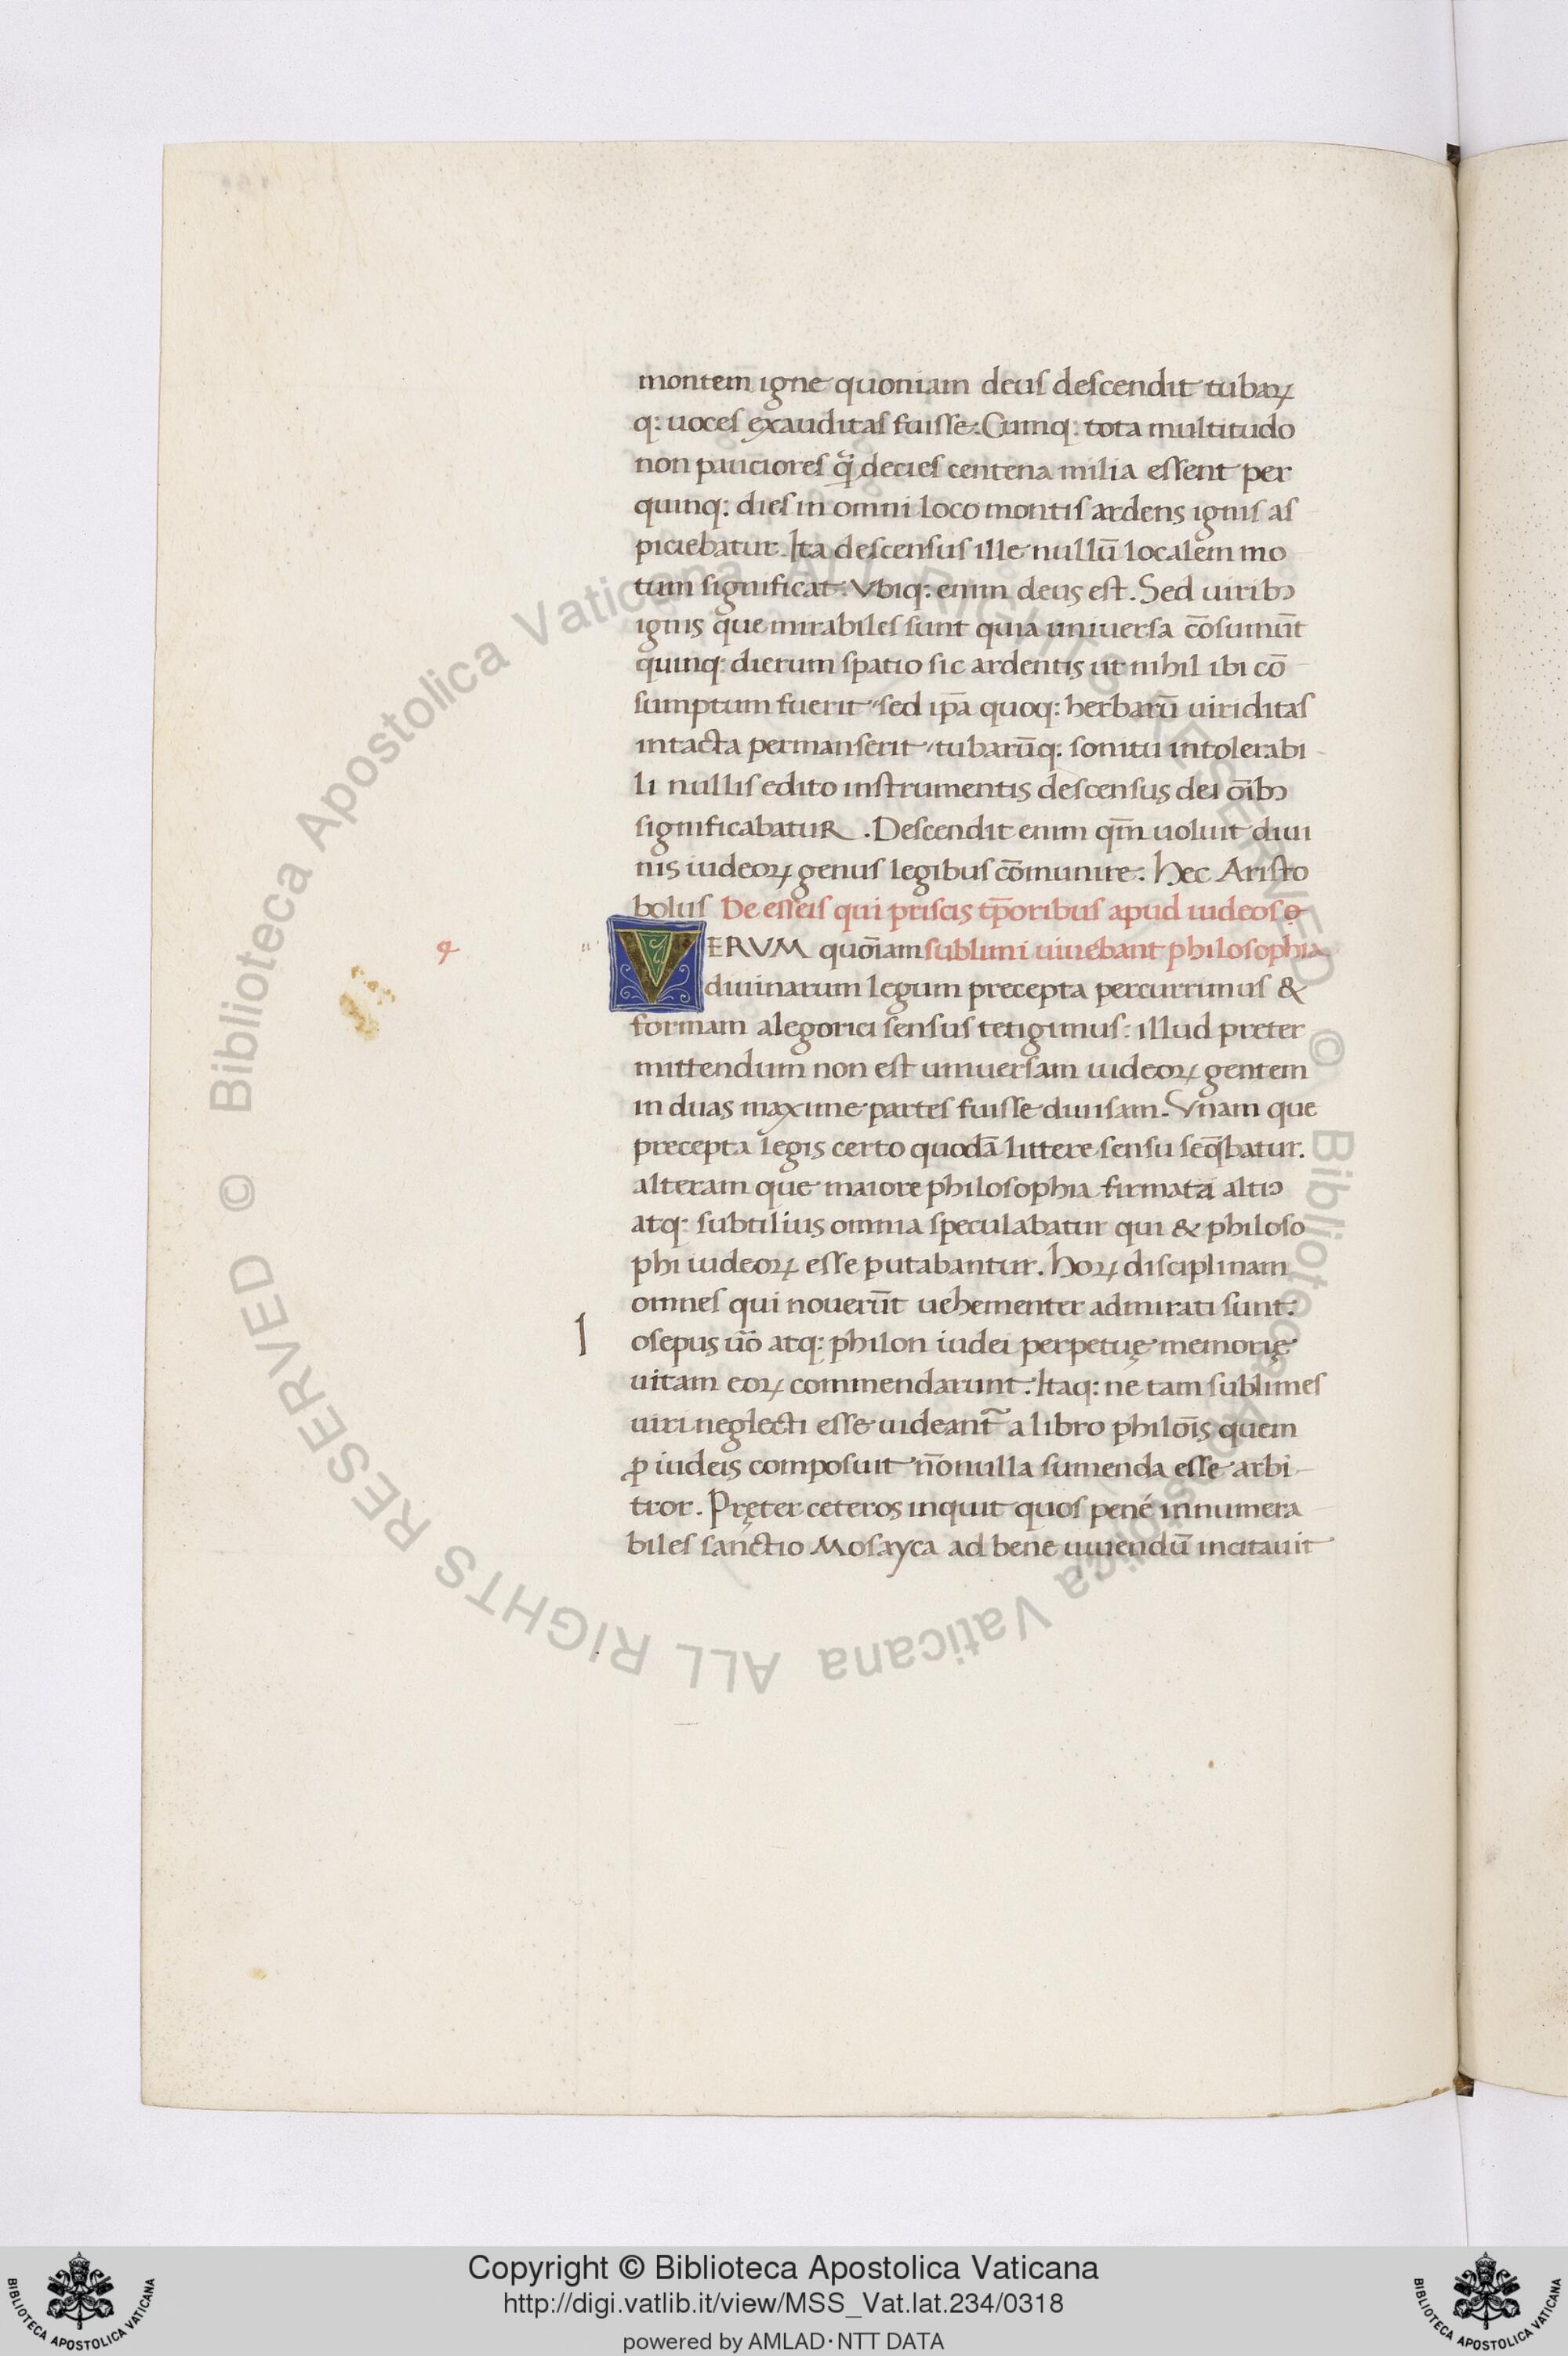 montem igne quoniam deus descendit tubaꝝ
q: uoces exauditas fuisse. Cumq: tota multitudo
non pauciores q̃ decies centena milia essent per
quinq: dies in omni loco montis ardens ignis as
piciebatur. Ita descensus ille nullū localem mo
tum significat. Vbiq: enim deus est. Sed uiribꝰ
ignis que mirabiles sunt quia uniuersa cōsumūt
quinq: dierum spatio sic ardentis ut nihil ibi cō
sumptum fuerit sed ip̄a quoq: herbarū uiriditas
intacta permanserit, tubarūq: sonitu intolerabi
li nullis edito instrumentis descensus dei oībꝰ
significabatur. Descendit enim qm̄ uoluit diui
nis iudeoꝝ genus legibus cōmunire. Hec Aristo
bolus De esseis qui priscis tp̄oribus apud iudeos
VERVM quoīam sublimi uiuebant philosophia
diuinarum legum precepta percurrimus &
formam alegorici sensus tetigimus: illud preter
mittendum non est uniuersam iudeoꝝ gentem
in duas maxime partes fuisse diuisam. Vnam que
precepta legis certo quodā littere sensu seq̄batur.
alteram que maiore philosophia firmata altiꝰ
atq: subtilius omnia speculabatur qui & philoso
phi iudeoꝝ esse putabantur. Hoꝝ disciplinam
omnes qui nouerūt uehementer admirati sunt.
Iosepus uō atq: philon iudei perpetuę memorię
uitam eoꝝ commendarunt. Itaq: ne tam sublimes
uiri neglecti esse uideant̃ a libro philoīs quem
ꝓ iudeis composuit nōnulla sumenda esse arbi
tror. Pręter ceteros inquit quos pené innumera
biles sanctio Mosayca ad bene uiuendū incitauit
© Biblioteca Apostolica Vaticana ALL RIGHTS RESERVED © Biblioteca Apostolica Vaticana ALL RIGHTS RESERVED
Copyright © Biblioteca Apostolica Vaticana
http://digi.vatlib.it/view/MSS_Vat.lat.234/0318
powered by AMLAD·NTT DATA
BIBLIOTECA APOSTOLICA VATICANA
BIBLIOTECA APOSTOLICA VATICANA